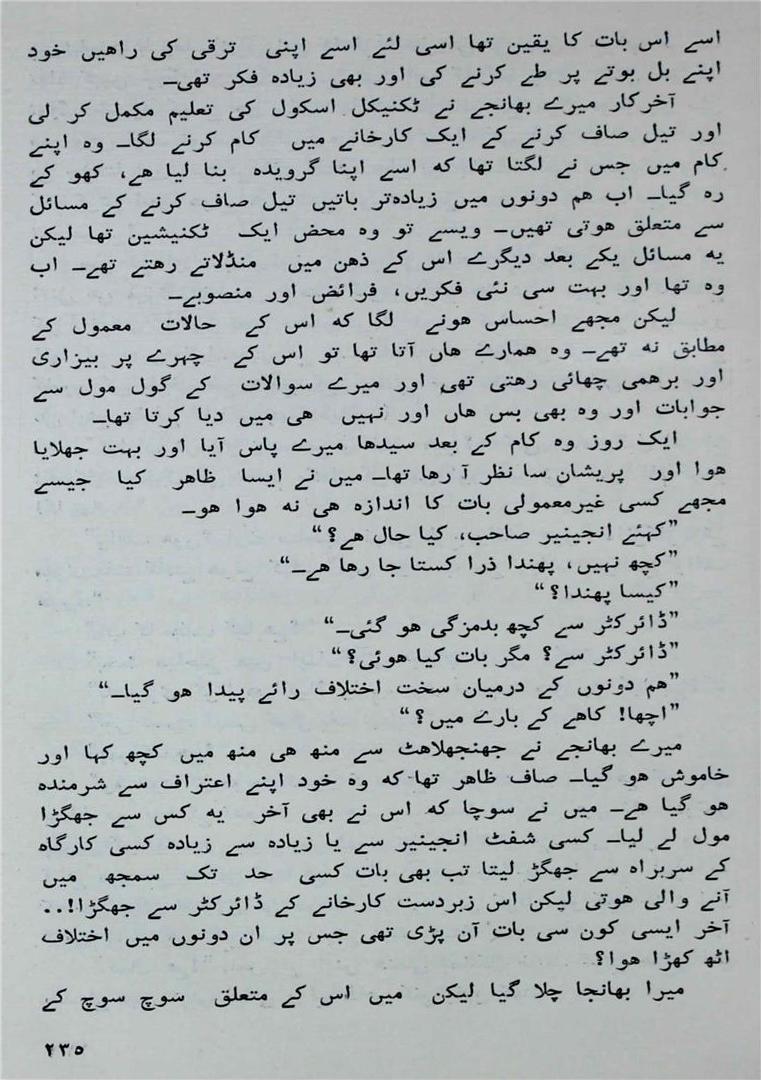 اسے اس بات کا یقین تھا اسی لئے اسے اپنی ترقی کی راھیں خود
اپنے بل بوتے پر طے کرنے کی اور بھی زیادہ فکر تھی۔
آخرکار میرے بھانجے نے ٹکنیکل اسکول کی تعلیم مکمل کر لی
اور تیل صاف کرنے کے ایک کارخانے میں کام کرنے لگا۔ وہ اپنے
کام میں جس نے لگتا تھا کہ اسے اپنا گرویدہ بنا لیا ھے، کھو کے
رہ گیا۔ اب ھم دونوں میں زیادہتر باتیں تیل صاف کرنے کے مسائل
سے متعلق ھوتی تھیں۔ ویسے تو وہ محض ایک ٹکنیشین تھا لیکن
یہ مسائل یکے بعد دیگرے اس کے ذھن میں منڈلاتے رھتے تھے۔ اب
وہ تھا اور بہت سی نئی فکریں، فرائض اور منصوبے۔
لیکن مجھے احساس ھونے لگا کہ اس کے حالات معمول کے
مطابق نہ تھے۔ وہ ھمارے ھاں آتا تھا تو اس کے چہرے پر بیزاری
اور برھمی چھائی رھتی تھی اور میرے سوالات کے گول مول سے
جوابات اور وہ بھی بس ھاں اور نہیں ھی میں دیا کرتا تھا۔
ایک روز وہ کام کے بعد سیدھا میرے پاس آیا اور بہت جھلایا
ھوا اور پریشان سا نظر آ رھا تھا۔ میں نے ایسا ظاھر کیا جیسے
مجھے کسی غیرمعمولی بات کا اندازہ ھی نہ ھوا ھو۔
”کہئے انجینیر صاحب، کیا حال ھے؟“
”کچھ نہیں، پھندا ذرا کستا جا رھا ھے۔“
”کیسا پھندا؟“
”ڈائرکٹر سے کچھ بدمزگی ھو گئی۔“
”ڈائرکٹر سے؟ مگر بات کیا ھوئی؟“
”ھم دونوں کے درمیان سخت اختلاف رائے پیدا ھو گیا۔“
”اچھا! کاھے کے بارے میں؟“
میرے بھانجے نے جھنجھلاھٹ سے منھ ھی منھ میں کچھ کہا اور
خاموش ھو گیا۔ صاف ظاھر تھا کہ وہ خود اپنے اعتراف سے شرمندہ
ھو گیا ھے۔ میں نے سوچا کہ اس نے بھی آخر یہ کس سے جھگڑا
مول لے لیا۔ کسی شفٹ انجینیر سے یا زیادہ سے زیادہ کسی کارگاہ
کے سربراہ سے جھگڑ لیتا تب بھی بات کسی حد تک سمجھ میں
آنے والی ھوتی لیکن اس زبردست کارخانے کے ڈائرکٹر سے جھگڑا!..
آخر ایسی کون سی بات آن پڑی تھی جس پر ان دونوں میں اختلاف
اٹھ کھڑا ھوا؟
میرا بھانجا چلا گیا لیکن میں اس کے متعلق سوچ سوچ کے
۲۳۵